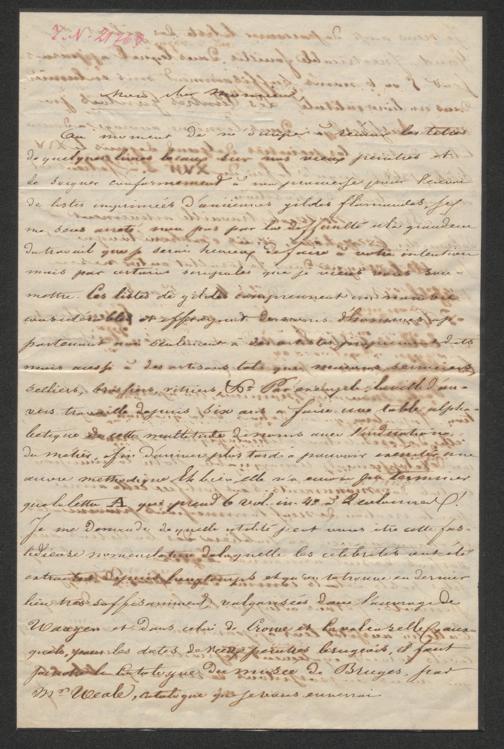 J. N. 21268
Mon cher Monsieur
Au moment de m'occuper à réunir les titres
de quelques livres locaux sur nos vieux peintres et
de soigner conformément à ma promesse pour l'envoi
de listes imprimées d'anciennes gildes flamandes, je
me suis arrêté, non pas par la difficulté et la grandeur
du travail que je serais heureux de faire à votre intention
mais par certains scrupules que je viens vous sou-
mettre. Les listes de gildes comprennent un nombre
considérable et effrayant de noms d'hommes ap-
partenant non seulement à des artistes proprement dits
mais aussi à des artisans tels que menuisiers
selliers, brossiers, vitriers &c. Par exemple la ville d'An-
vers travaille depuis dix ans à faire une table alpha-
bétique de cette multitude de noms avec l'indication
du métier, afin d'arriver plus tard à pouvoir exécuter une
œuvre méthodique. Eh bien elle n'a encore pu terminer
que la lettre A qui prend 6 vol. in 4° à 2 colonnes!
Je me demande de quelle utilité peut vous être cette fas-
tidieuse nomenclature de laquelle les célébrités ont été
extraites depuis longtemps et qu'on retrouve en dernier
lieu très suffisamment vulgarisées dans l'ouvrage de
Waagen et dans celui de Crowe et Cavalcaselle, aux-
quels, pour les dates de nos peintres brugeois, il faut
joindre le Catalogue du musée de Bruges, par
Mr. Weale, catalogue que je vous enverrai